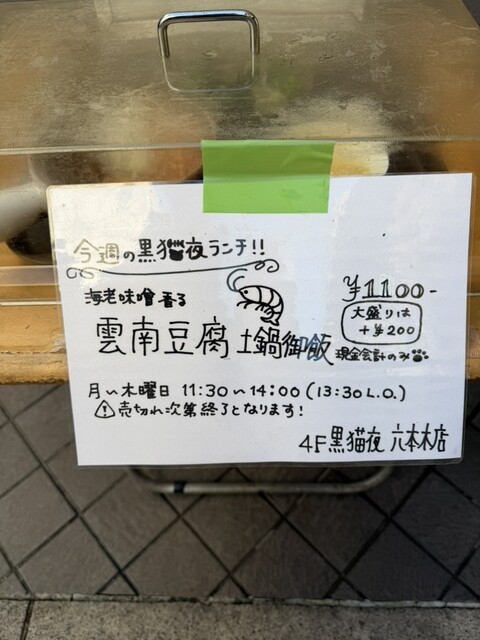 今週の黒猫夜ランチ!!
海老味噌香る
雲南豆腐 土鍋御飯
¥1100-
大盛りは
+¥200
現金会計のみ
月〜木曜日 11:30〜14:00(13:30 L.O.)
⚠売切れ次第終了となります!
4F黒猫夜 六本木店